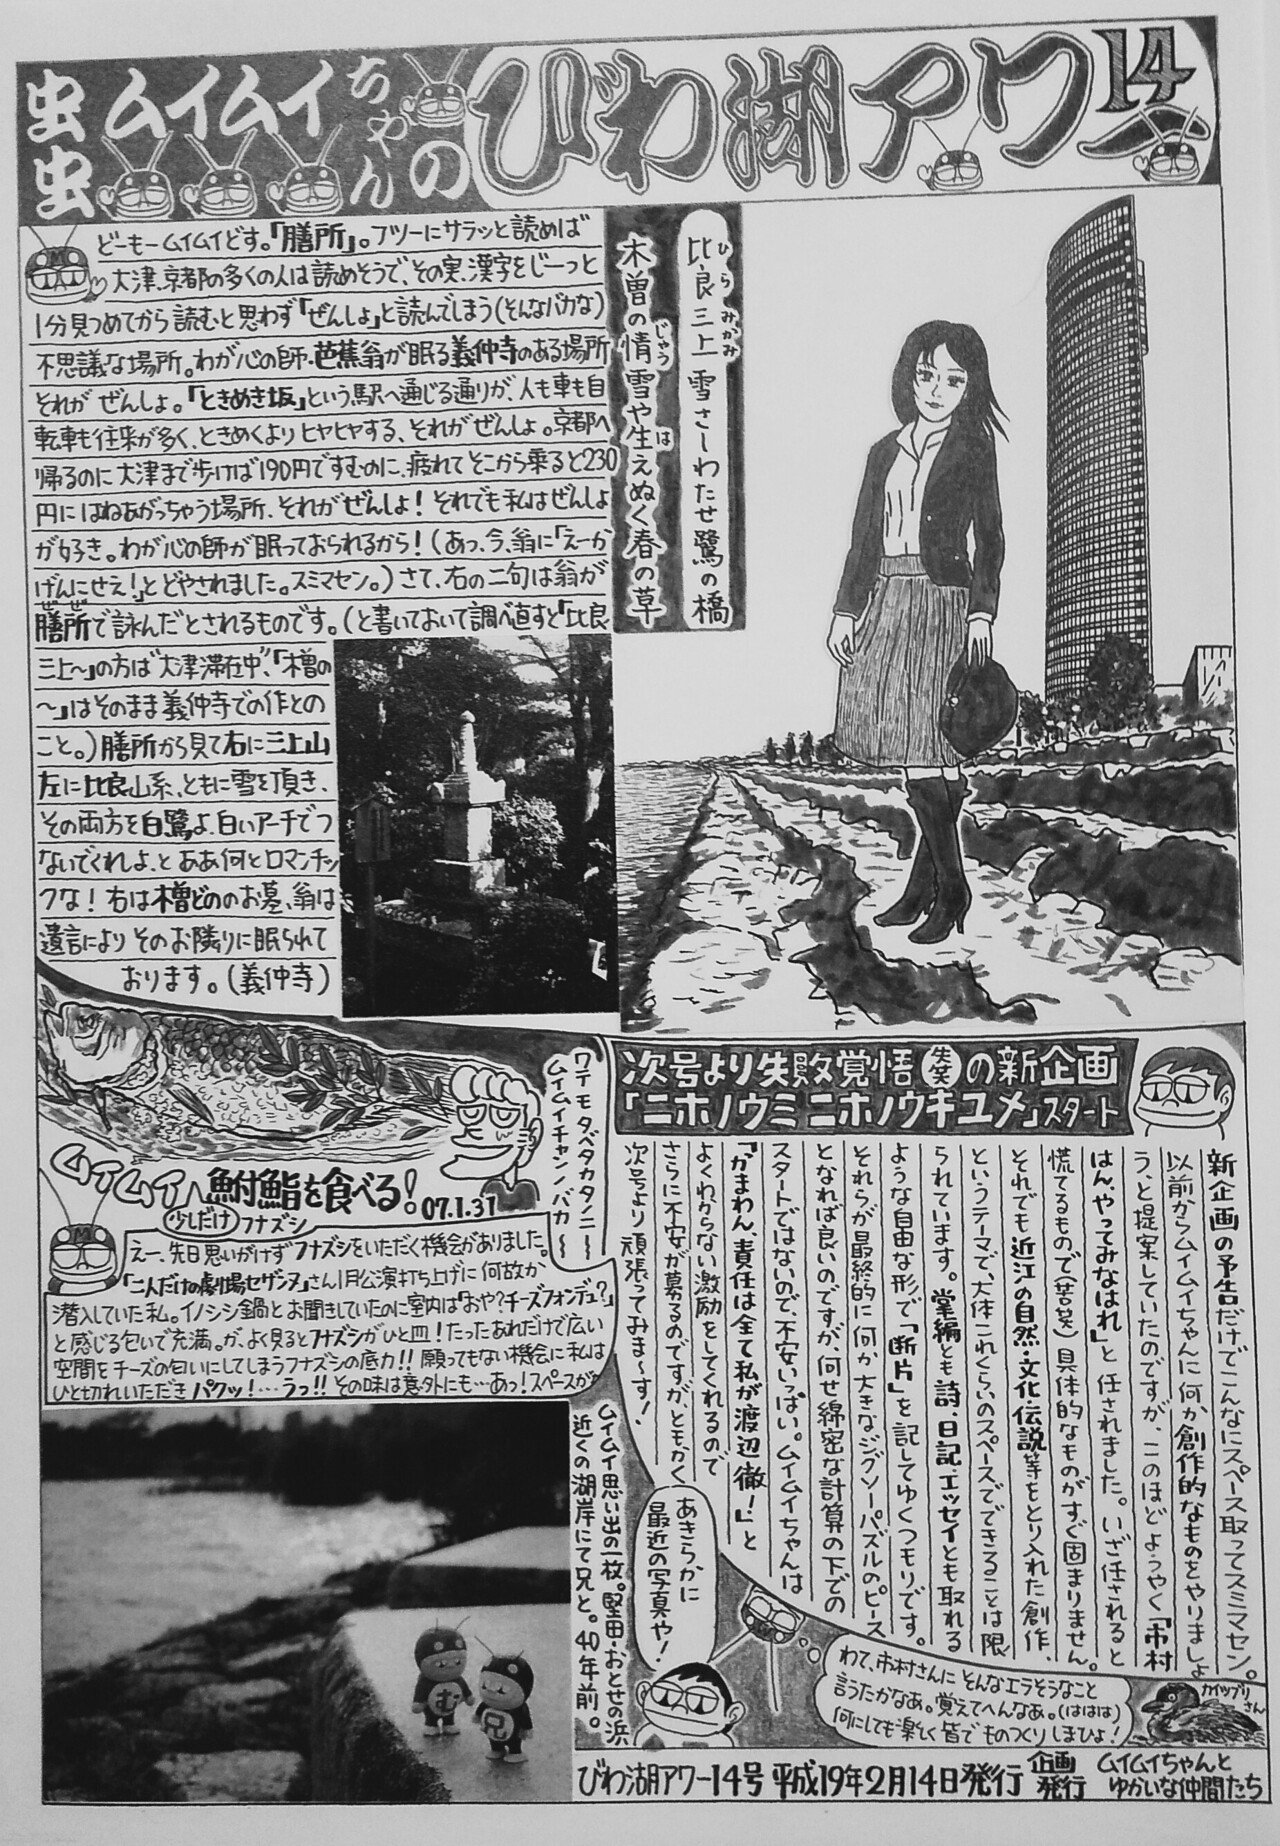 虫虫ムイムイちゃんの
びわ湖アワー14
どーもームイムイどす。「膳所」。フツーにサラッと読めば
大津、京都の多くの人は読めそうで、その実、漢字をじーっと
1分見つめてから読むと思わず「ぜんしょ」と読んでしまう(そんなバカな)
不思議な場所。わが心の師・芭蕉翁が眠る義仲寺のある場所
それが ぜんしょ。「ときめき坂」という駅へ通じる通りが、人も車も自
転車も往来が多く、ときめくより ヒヤヒヤする、それがぜんしょ。京都へ
帰るのに大津まで歩けば190円ですむのに、疲れてそこから乗ると230
円にはねあがっちゃう場所、それがぜんしょ!それでも私はぜんしょ
が好き。わが心の師が眠っておられるから!(あっ、今、翁に「えーか
げんにせえ!」とどやされました。スミマセン。)さて、右の二句は翁が
膳所で詠んだとされるものです。(と書いておいて調べ直すと「比良
三上〜」の方は"大津滞在中"、「木曽の
〜」はそのまま義仲寺での作との
こと。)膳所から見て右に三上山
左に比良山系、ともに雪を頂き、
その両方を白鷺よ、白いアーチでつ
ないでくれよ、と ああ何とロマンチッ
クな!右は木曽どののお墓、翁は
遺言により そのお隣りに眠られて
おります。(義仲寺)
比良三上 雪さしわたせ鷺の橋
ひら みかみ
木曽の情 雪や生えぬく春の草
じやう は
ワテモ タベタカタニー
ムイムイチャンノバカ〜
ムイムイ 鮒鮨を食べる! 07.1.31
少しだけ フナズシ
えー、先日思いがけずフナズシをいただく機会がありました。
「二人だけの劇場セザンヌ」さん1月公演打ち上げに何故か
潜入していた私。イノシシ鍋とお聞きしていたのに室内は「おや?チーズフォンデュ?」
と感じる匂いで充満。が、よく見るとフナズシがひと皿!たったあれだけで広い
空間をチーズの匂いにしてしまうフナズシの底力!!願ってもない機会に私は
ひと切れいただき パクッ!…うっ!!その味は意外にも…あっ!スペースが
次号より失敗覚悟失笑の新企画
「ニホノウミニホノウキユメ」スタート
新企画の予告だけでこんなにスペース取ってスミマセン。
以前からムイムイちゃんに何か創作的なものをやりましょ
う、と提案していたのですが、このほどようやく「市村
はん、やってみなはれ」と任されました。いざ任されると
慌てるもので(苦笑)具体的なものがすぐ固まりません。
それでも近江の自然・文化・伝説等をとり入れた創作、
というテーマで、大体これくらいのスペースでできることは限
られています。掌編とも詩、日記、エッセイとも取れる
ような自由な形で「断片」を記してゆくつもりです。
それらが最終的に何か大きなジグソーパズルのピース
となれば良いのですが、何せ綿密な計算の下での
スタートではないので、不安いっぱい。ムイムイちゃんは
「かまわん、責任は全て私が渡辺徹!」と
よくわからない激励をしてくれるので
さらに不安が募るのですが、ともかく
次号より頑張ってみま〜す!
ムイムイ思い出の一枚。堅田・おとせの浜
近くの湖岸にて兄と。40年前。
む
兄
あきらかに
最近の写真や!
わて、市村さんに そんなエラそうなこと
言うたかなあ。覚えてへんなあ。(ははは)
何にしても楽しく皆でものつくりしまひょ!
カイツブリさん
びわ湖アワー14号 平成19年2月14日発行 企画発行 ムイムイちゃんとゆかいな仲間たち